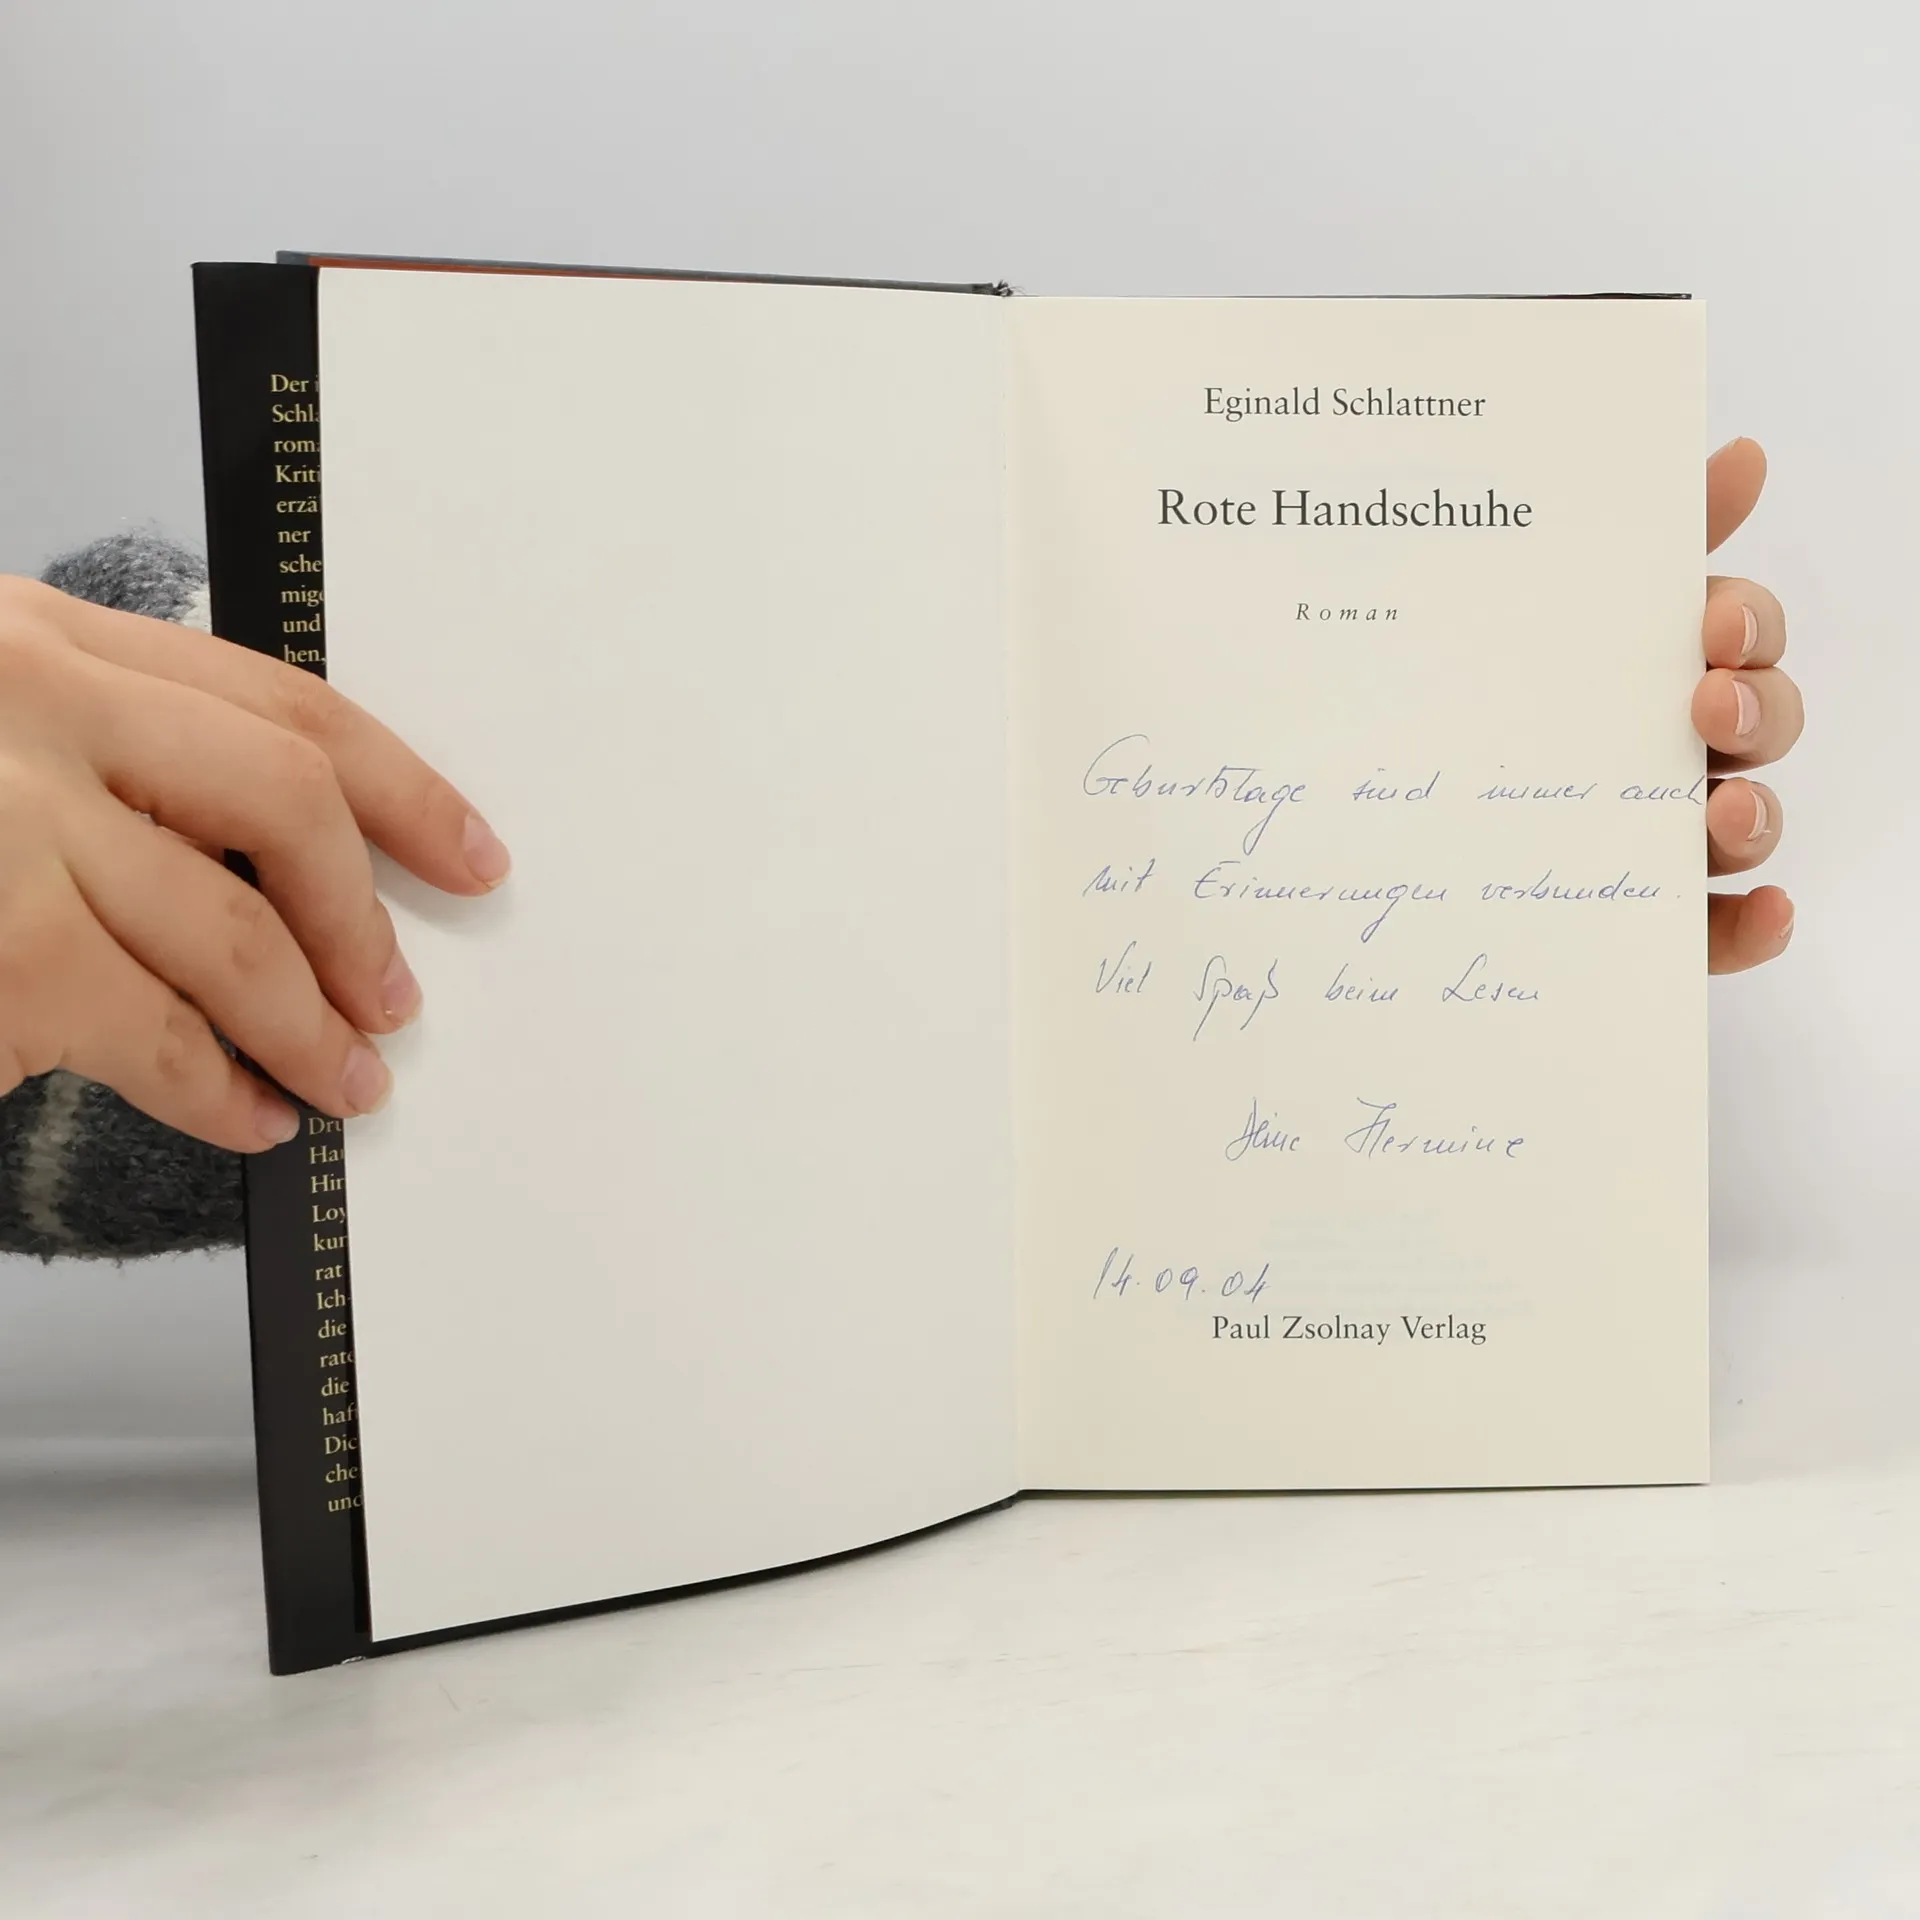 Der
Schl
rom
Krit
erzä
ner
sche
mig
und
hen,
Dru
Ha
Hin
Loy
kun
rat
Ich-
die
rate
die
haf
Dic
che
und
Eginald Schlattner
Rote Handschuhe
Roman
Geburtstage sind immer auch
mit Erinnerungen verbunden.
Viel Spaß beim Lesen
Deine Hermine
14.09.04
Paul Zsolnay Verlag